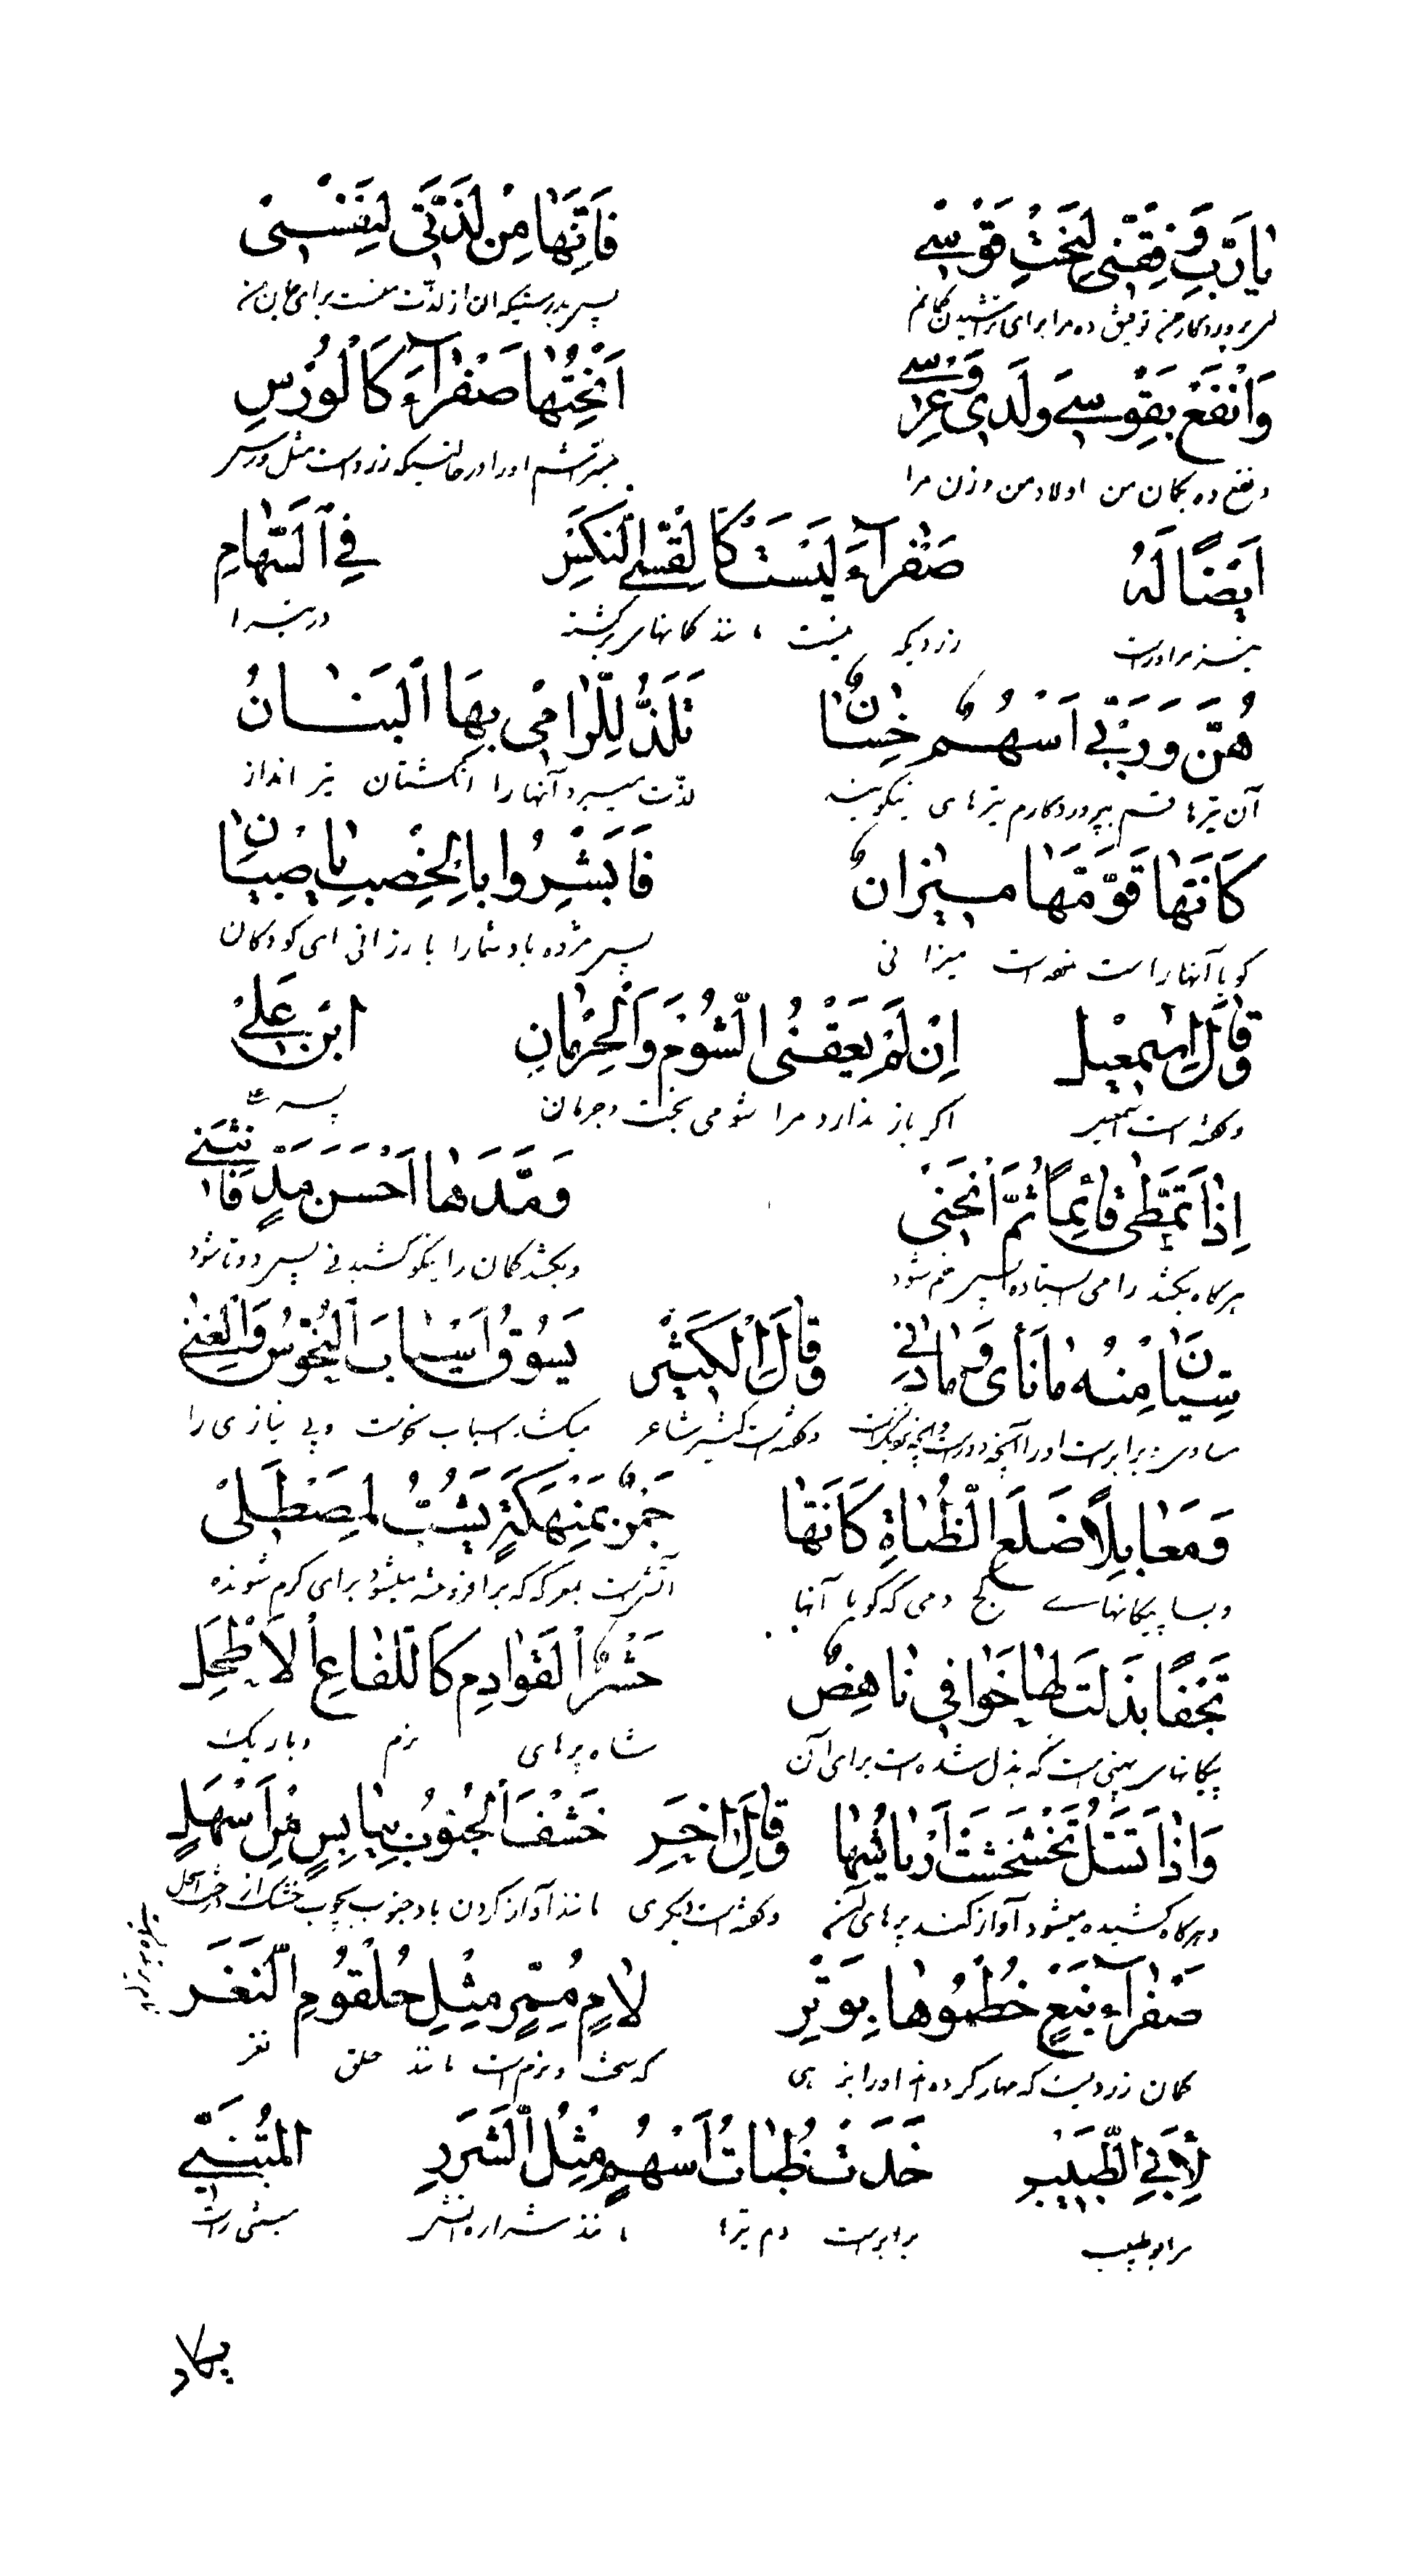 يَا رَبِّ وَفِّقْنِي لِنَحْتِ قَوْسِي فَاِنَّهَا مِنْ لَذَّتِي لِنَفْسِي
ای پروردگار من توفیق ده مرا برای تراشیدن کمانم پس بدرستیکه ان از لذت منست برای جان من
وَانْفَعْ بِقَوْسِي وَلَدِي وَعِرْسِي اَنْحِتُهَا صَفْرَآءَ كَالْوَرْسِ
و نفع ده بکمان من اولاد من و زن مرا میتراشم اورا در حالتیکه زرد است مثل ورس
اَيْضًا لَهُ صَفْرَآءَ لَيْسَتْ كَالْقِسِيِّ النُّكْسِ فِي السِّهَامِ
نیز مر اوراست زرد یکه نیست مانند کمانهای برگشته در تیرها
هُنَّ وَرَبِّي اَسْهُمٌ حِسَانٌ تَلَذُّ لِلرَّامِي بِهَا الْبَنَانُ
آن تیرها قسم بپروردگارم تیرهای نیکویند لذت میبرد آنها را انگشتان تیر انداز
كَاَنَّهَا قَوَّمَهَا مِيزَانٌ فَابْشِرُوا بِالْخِصْبِ يَا صِبْيَانُ
گویا آنها راست نموده است میزانی پس مژده باد شما را بارزانی ای کودکان
وَقَالَ اِسْمٰعِيلُ اِنْ لَمْ يَعُقْنِي الشُّؤْمُ وَالْحِرْمَانُ ابْنُ عَلِيٍّ
و گفته است اسمعیل اگر باز ندارد مرا شومی بخت و حرمان پسر علی
اِذَا تَمَطَّى قَائِمًا ثُمَّ انْحَنَى وَمَدَّهَا اَحْسَنَ مَدٍّ فَانْثَنَى
هرگاه بکشد رامی ایستاده پس خم شود و بکشد کمان را نیکو کشیدنی پس دوتا شود
سِيَّانِ مِنْهُ مَا نَأَى وَمَا دَنَى وَقَالَ الْكُثَيِّرُ يَسُوقُ اَسْبَابَ النُّحُوسِ وَالْغِنَى
برابر است اورا آنچه دور است و آنچه نزدیکست و گفته است کثیر شاعر میکشد اسباب نحوست و بی نیازی را
وَمَعَابِلًا ضُلْعَ الظُّبَاةِ كَاَنَّهَا جَمْرٌ بِمَهْلَكَةٍ يُشَبُّ لِمُصْطَلَى
و بسا پیکانهای کج دمی که گویا آنها آتشیست بمعرکه که برافروخته میشود برای گرم شونده
نُجُفًا بَذَلْتُ لَهَا خَوَافِيَ نَاهِضٍ حَشْرِ الْقَوَادِمِ كَاللِّفَاعِ الْاَطْحَلِ
پیکانهای پهنی است که بذل شده است برای آن شاه پرهای نرم و باریک
وَاِذَا تُسَلُّ تَخَشْخَشَتْ اَرْيَاشُهَا وَقَالَ اٰخَرُ خَشْفَ الْجَنُوبِ بِيَابِسٍ مِنْ اِسْحِلٍ
و هرگاه کشیده میشود آواز کنند پرهای و گفته است دیگری مانند آواز کردن باد جنوب بچوب خشک از درخت اسحل
صَفْرَآءُ نَبْعٍ خَطَمُوهَا بِوَتَرٍ لَامٍ مُمَرٍّ مِثْلِ حُلْقُومِ النُّغَرِ
کمان زردیست که مهار کرده اند اورا بزهی که سخت و نرم است مانند حلق نغر
لِاَبِي الطَّيِّبِ حَدَتْ ظُبَاتُ اَسْهُمٍ مِثْلُ الشَّرَرِ الْمُتَنَبِّي
مر ابوطیب برابر است دم تیرها مانند شراره آتش متنبی راست